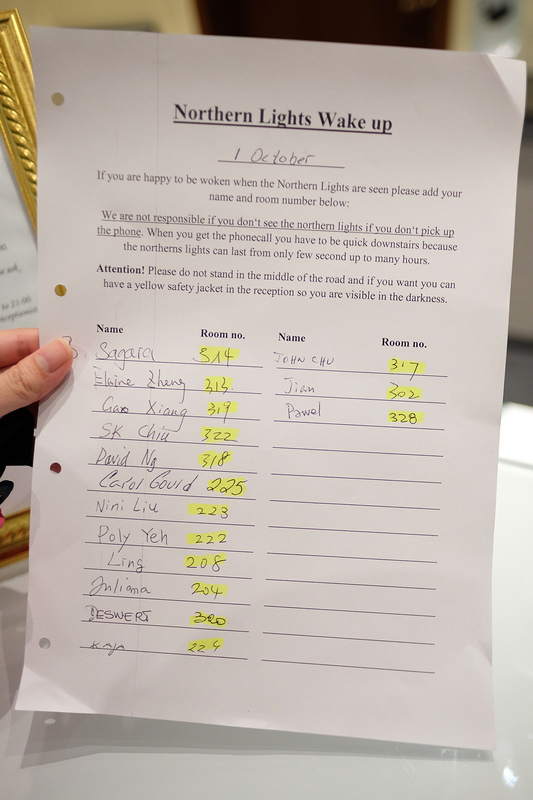 Northern Lights Wake up
1 October
If you are happy to be woken when the Northern Lights are seen please add your
name and room number below:
We are not responsible if you don't see the northern lights if you don't pick up
the phone. When you get the phonecall you have to be quick downstairs because
the northerns lights can last from only few second up to many hours.
Attention! Please do not stand in the middle of the road and if you want you can
have a yellow safety jacket in the reception so you are visible in the darkness.
Name Room no. Name Room no.
Sagara 314 JOHN CHU 317
Elaine Zheng 313 Jian 302
Gao Xiang 319 Pawel 328
SK Chiu 322
David Ng 318
Carol Gould 225
Nini Liu 223
Poly Yeh 222
Ling 208
Juliana 204
DESWERT 320
KAJA 224
to 21:00